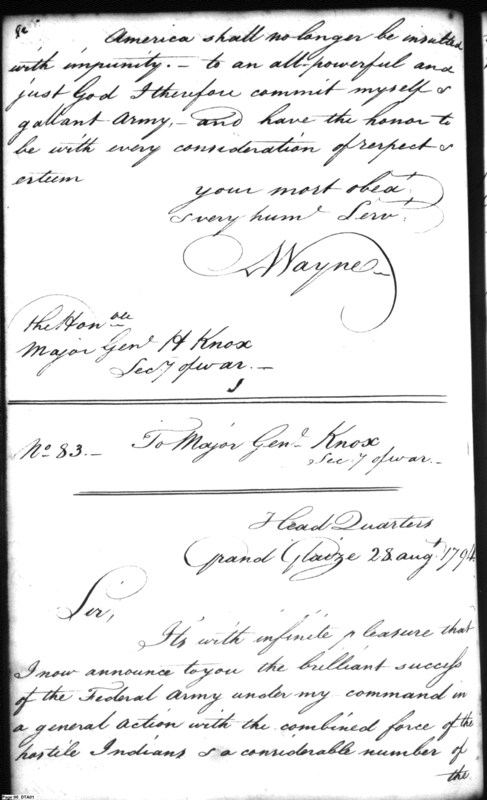 America shall no longer be insulted
with impunity. – to an all-powerful and
just God I therefore commit myself &
gallant army, – and have the honor to
be with every consideration of respect &
esteem
your most obedt.
& very huml. Servt.
AWayne
The Honble
Major Genl. H Knox
Secy of war. –
No. 83. – To Major Genl. Knox
Secy of war. –
Head Quarters
Grand Glaize 28 augt. 1794
Sir,
It's with infinite pleasure that
I now announce to you the brilliant success
of the Federal Army under my command in
a general action with the combined force of the
hostile Indians & a considerable number of
the